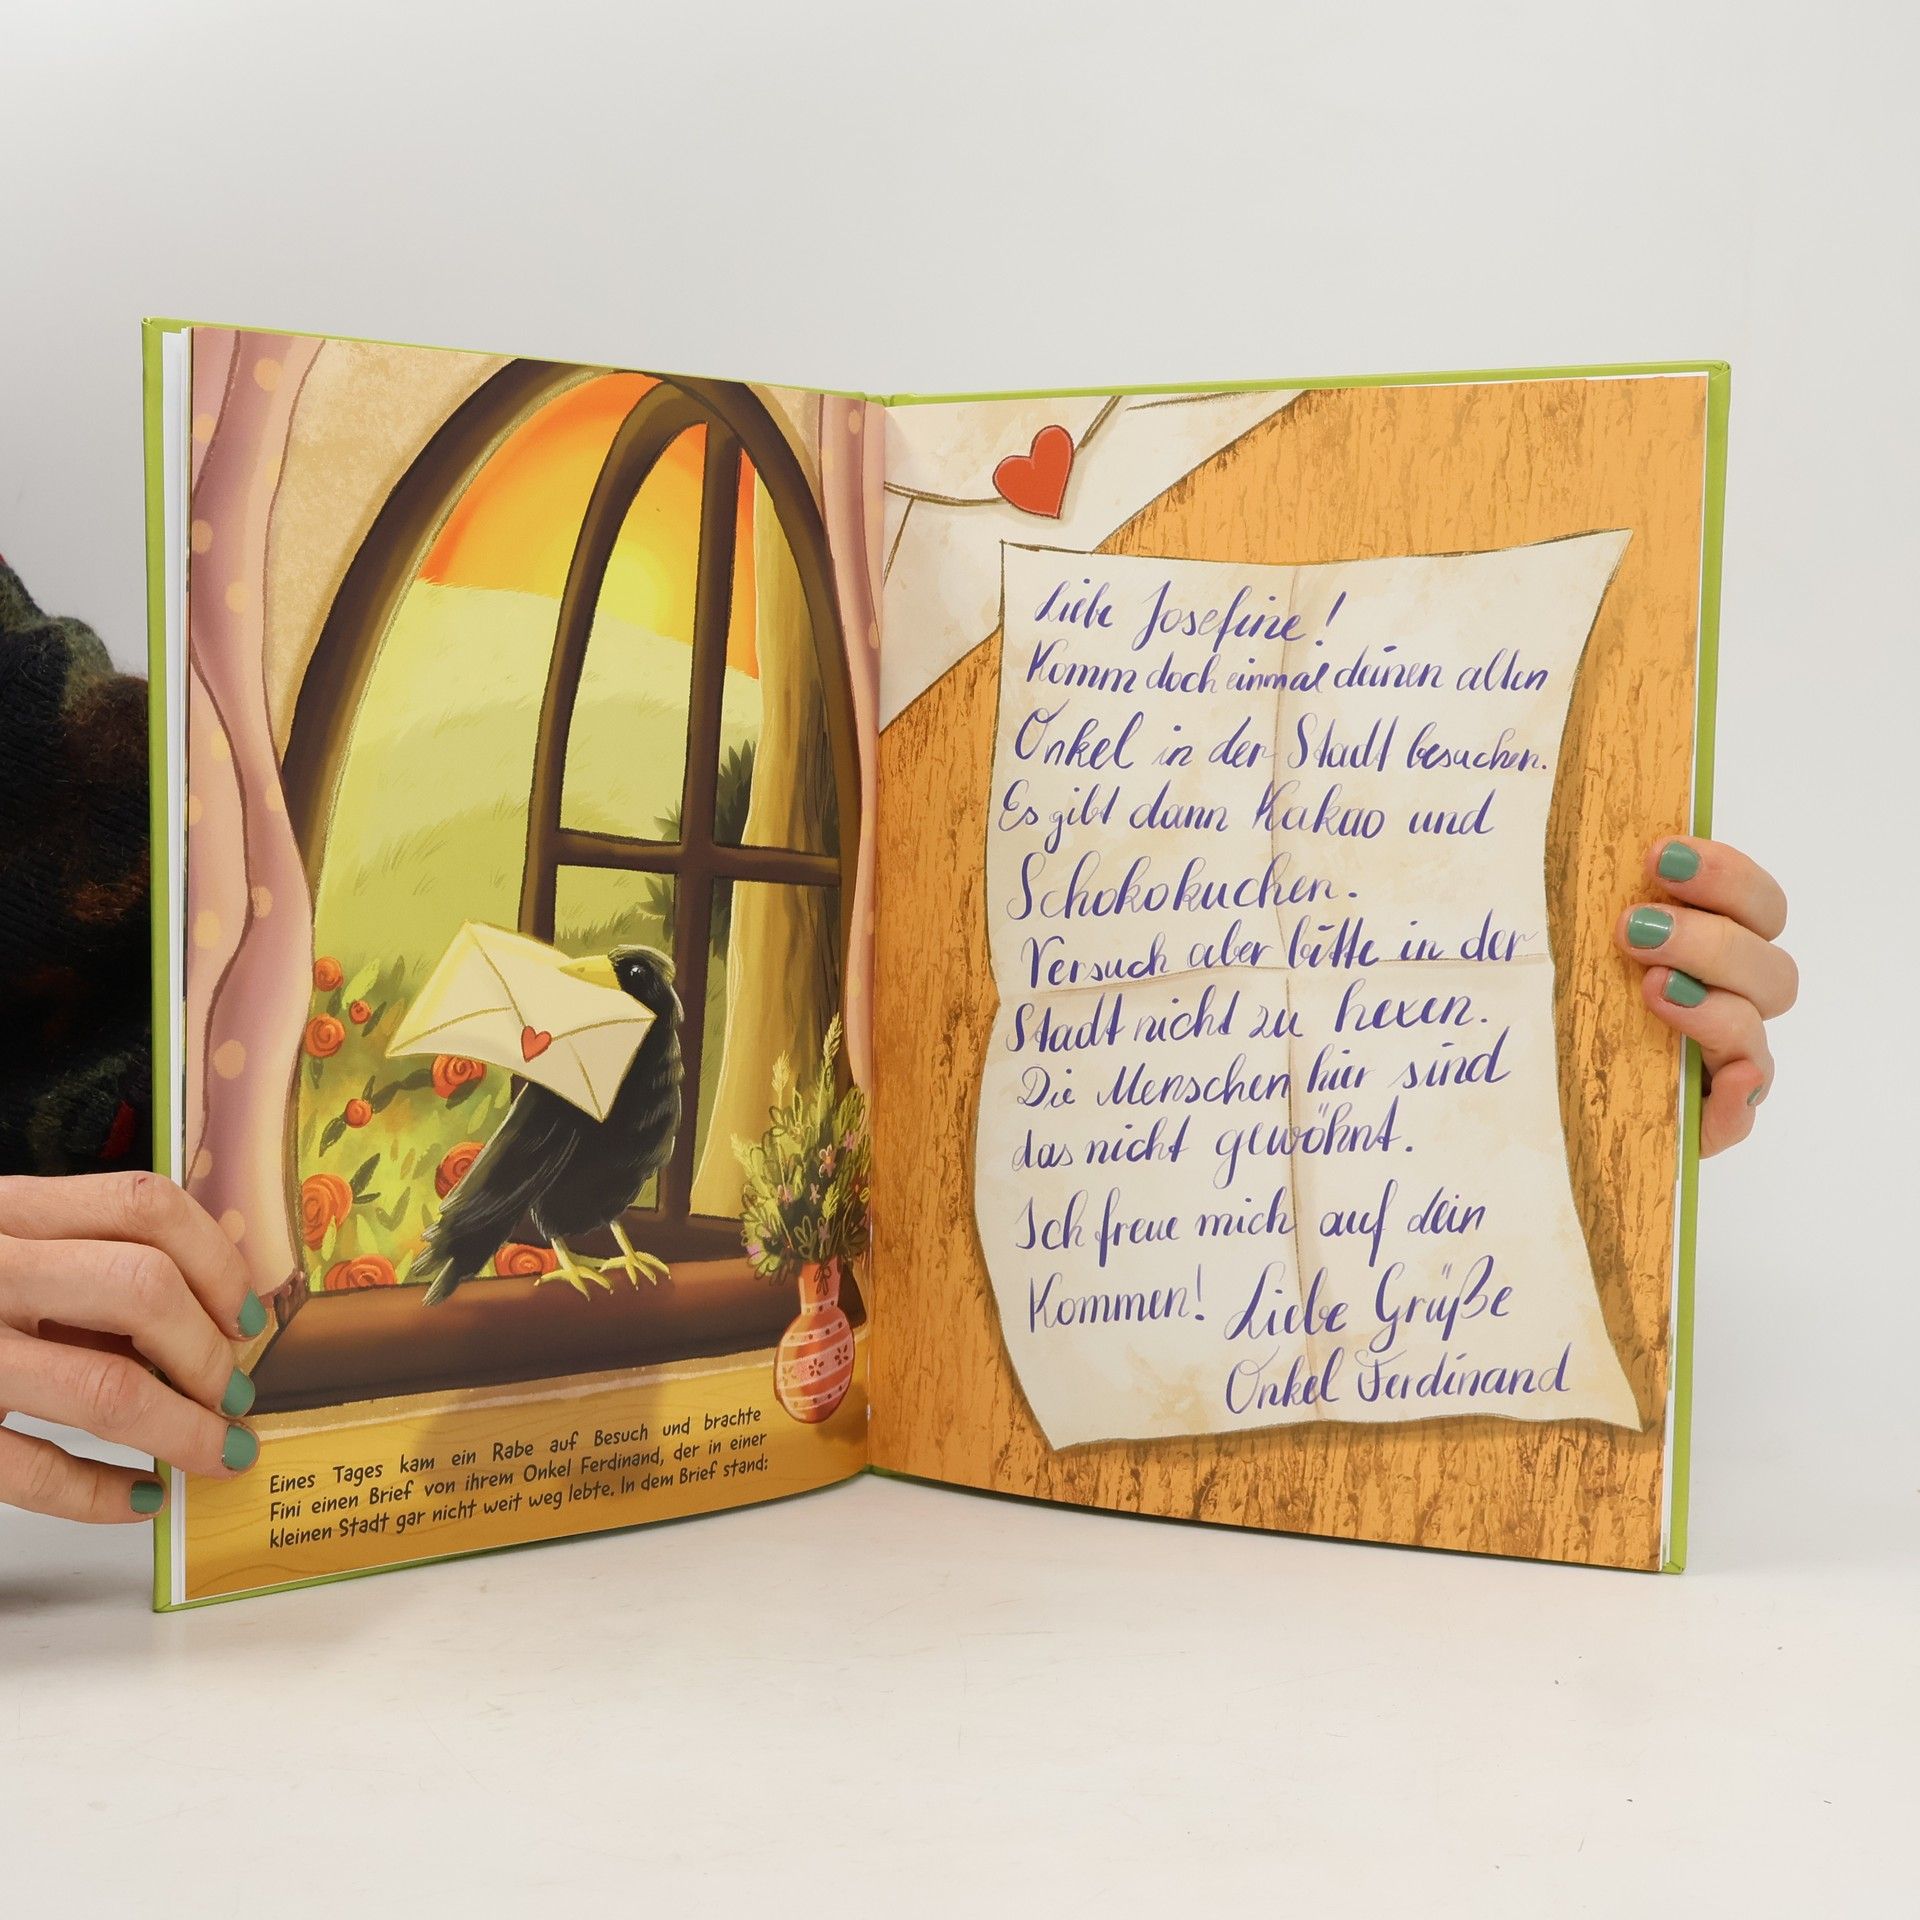 Eines Tages kam ein Rabe auf Besuch und brachte
Fini einen Brief von ihrem Onkel Ferdinand, der in einer
kleinen Stadt gar nicht weit weg lebte. In dem Brief stand:
Liebe Josefine!
Komm doch einmal deinen alten
Onkel in der Stadt besuchen.
Es gibt dann Kakao und
Schokokuchen.
Versuch aber bitte in der
Stadt nicht zu hexen.
Die Menschen hier sind
das nicht gewöhnt.
Ich freue mich auf dein
Kommen! Liebe Grüße
Onkel Ferdinand